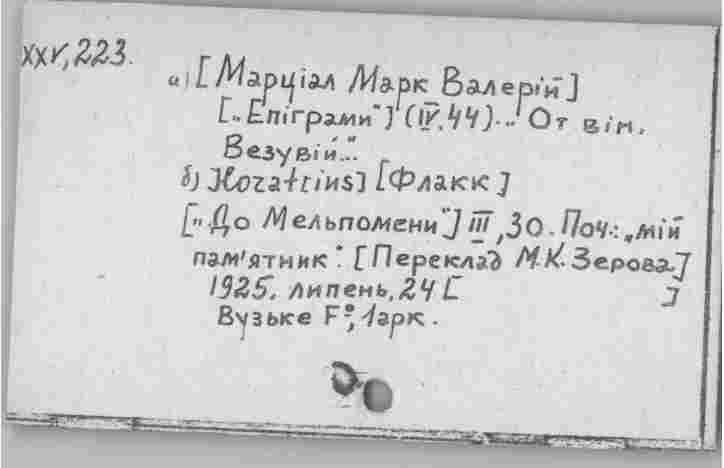 XXV, 223.
а) [Марціал Марк Валерій]
[„Епіграми"] (IV, 44)... От він,
Везувій..."
б) Horatius] [Флакк]
[„До Мельпомени"] III, 30. Поч.: „мій
пам'ятник". [Переклад М.К. Зерова]
1925, липень, 24 [ ]
Вузьке F°, 1арк.